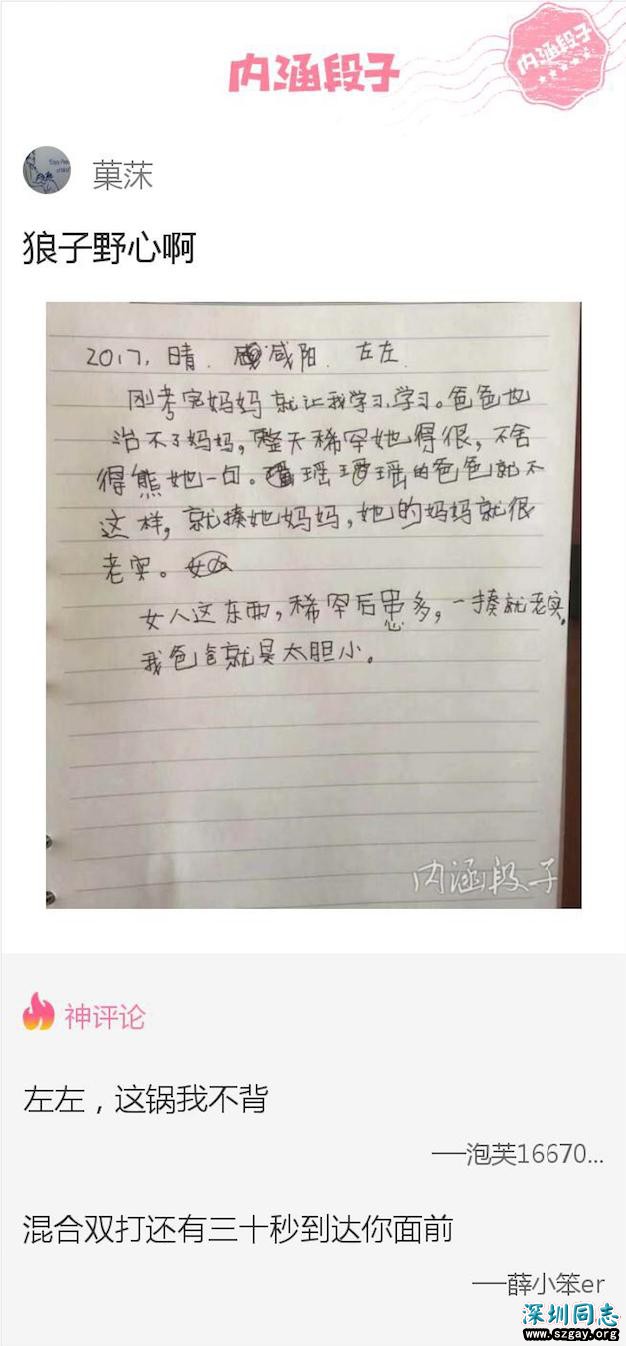 内涵段子
内涵段子
菓莯
狼子野心啊
2017，晴．咸阳．左左．
刚考完妈妈就让我学习，学习。爸爸也
治不了妈妈，整天稀罕她得很，不舍
得熊她一句。瑶瑶的爸爸就不
这样，就揍她妈妈，她的妈妈就很
老实。
女人这东西，稀罕后患多，一揍就老实。
我爸爸就是太胆小。
内涵段子
神评论
左左，这锅我不背
——泡芙16670...
混合双打还有三十秒到达你面前
——薛小笨er
深圳同志
www.szgay.org